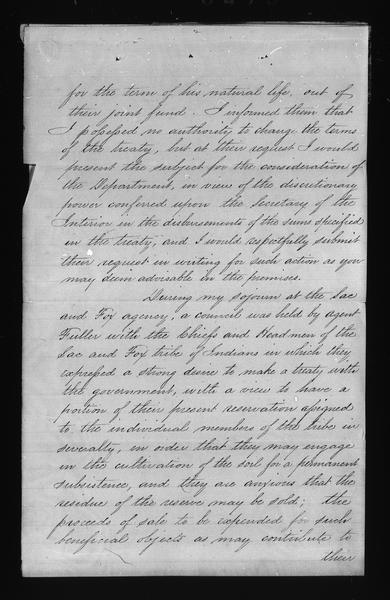 for the term of his natural life, out of
their joint fund. I informed them that
I possessed no authority to change the terms
of the treaty, but at their request I would
present the subject for the consideration of
the Department, in view of the discretionary
power conferred upon the Secretary of the
Interior in the disbursements of the sums specified
in the treaty, and I would respectfully submit
their request in writing for such action as you
may deem advisable in the premises.
During my sojourn at the Sac
and Fox agency, a council was held by agent
Fuller with the Chiefs and Headmen of the
Sac and Fox tribe of Indians in which they
expressed a strong desire to make a treaty with
the government, with a view to have a
portion of their present reservation assigned
to the individual members of the tribe in
severalty, in order that they may engage
in the cultivation of the soil for a permanent
subsistence, and they are anxious that the
residue of the reserve may be sold; the
proceeds of sale to be expended for such
beneficial objects as may contribute to
their